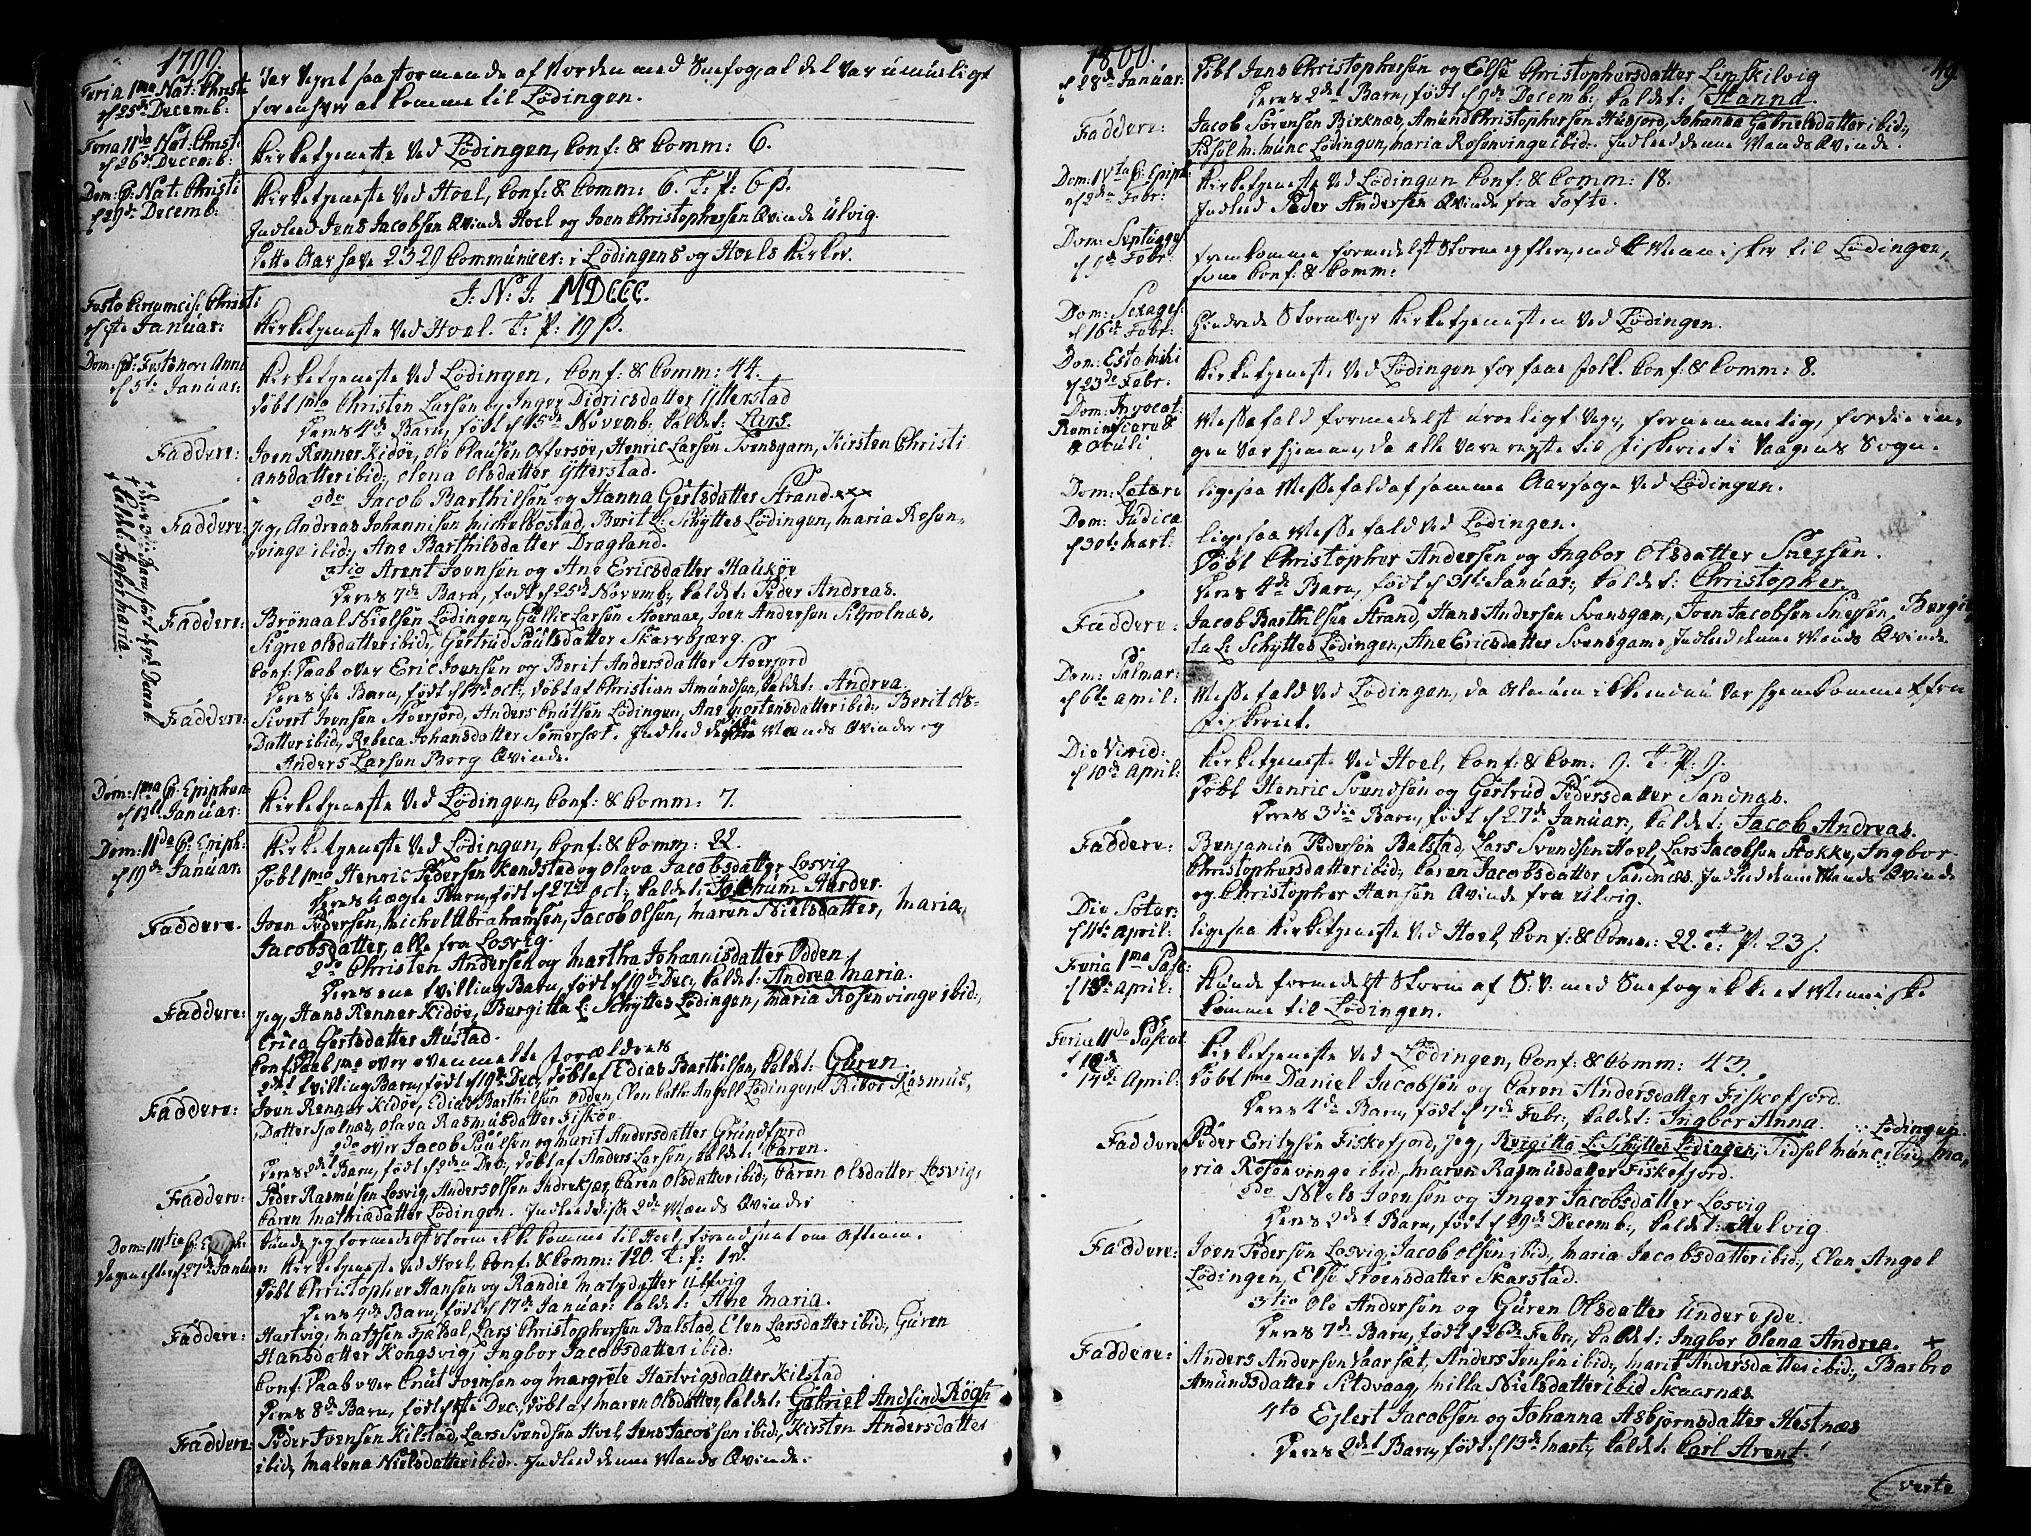 1799.
Feria 1ma Nat: Christi
d 25de Decemb:
Var Veyret saa stormende af Norden med Sneefog, at det var umueligt
for enhver at komme til Lödingen.
Feria 11da Nat: Christi
d 26de Decemb:
Kirketieneste Ved Lödingen, Conf: & Comm: 6.
Dom: p: Nat: Christi
d 29de Decemb:
Kirketieneste Ved Hoel, Conf: & Comm: 6. T: P: 6 ß.
Indled Jens Jacobsen Qvinde Hoel og Joen Christophersen Qvinde Ulvig.
Dette Aar have 2329 Communicer: i Lödingens og Hoels Kirker.
J. N. J. MDCCC.
Festo Circumcis: Christi
d 1ste Januar:
Kirketieneste Ved Hoel. T: P: 19 ß.
Dom: p: Fest: novi Anni
d 5te Januar:
Kirketieneste Ved Lödingen, Conf: & Comm: 44.
Döbt 1mo Christen Larsen og Inger Didricsdatter Ytterstad
Deres 4de Barn, födt d 15de Novemb: kaldet: Lars.
Faddere: Joen Renner Kidöe, Ole Clausen Ostersöe, Henric Larsen Svensgam, Kirsten Christi
ansdatter ibid:, Olena Olsdatter Ytterstad.
2do Jacob Barthilsen og Hanna Gertsdatter Strand xxx
Faddere: jeg, Andreas Johannisen Michelbostad, Berit L: Schyttes Lödingen, Maria Rosen-
vinge ibid:, Ane Barthilsdatter Dragland.
3tio Arent Joensen og Ane Ericsdatter Haukøe
Deres 7de Barn, födt d 25de Novemb: kaldet: Peder Andreas.
Faddere: Brönaal Nielsen Lödingen, Gullic Larsen, Joen Andersen,
Signe Olsdatter ibid:, Gertrud Paulsdatter Skarvbjerg.
Conf: Daab over Eric Joensen og Berit Andersdatter
Deres 1ste Barn, födt d 14de Oct:, döbt af Christian Amundsen, kaldet: Andrea.
Faddere: Sivert Joensen, Anders Cnutsen Lödingen, Ane Mortensdatter ibid:, Berit Ols-
Datter ibid:, Rebeca Johansdatter Sömersæt. Indled disse Mænds Qvinder og
Anders Larsen Berg Qvinde.
† deres 3die Barn, födt d 3de Decemb:
† kaldet: Ingbor Maria.
Dom: 1ma p: Epiphan
d 12te Januar:
Kirketieneste Ved Lödingen, Conf: & Comm: 7.
Dom: 11da p: Epiph:
d 19de Januar:
Kirketieneste Ved Lödingen, Conf: & Comm: 22.
Döbt 1mo Henric Pedersen Kandstad og Olava Jacobsdatter Losvig
Deres 4 ægte Barn, födt d 27de Oct:, kaldet: Jochum Harder.
Faddere: Joen Pedersen, Michel Abrahamsen, Jacob Olsen, Maren Nielsdatter, Maria
Jacobsdatter, alle fra Losvig.
2do Christen Andersen og Martha Johannisdatter Odden
Deres ene tvilling Barn, födt d 19de Dec:, kaldet: Andrea Maria.
Faddere: jeg, Hans Renner Kidöe, Burgitta L: Schyttes Lödingen, Maria Rosenvinge ibid:,
Erica Gertsdatter Hustad.
Conf: Daab 1mo over ovenmelte forældres
2det tvilling Barn, födt d 19de Dec:, döbt af Edias Barthilsen, kaldet: Guren.
Faddere: Joen Renner Kidöe, Edias Barthilsen Odden, Elen Cath: Angell Lödingen, Ribor Rasmus,
Datter Fjelnæs, Olava Rasmusdatter Fiskøe.
2do over Jacob Paulsen og Marit Andersdatter Grundfiord
Deres 2det Barn, födt d 2den Dec:, döbt af Anders Larsen, kaldet: Caren.
Faddere: Peder Rasmusen Losvig, Anders Olsen Indrekjær, Caren Olsdatter ibid:, Caren Olsdatter Losvig,
Caren Mathiædatter Lödingen. Indled disse 2de Mænds Qvinder
Dom: 111tia p: Epiph:
Dagen efter d 27de Januar:
Kunde jeg formedelst storm ikke komme til Hoel, förend seent om Aftenen.
Kirketieneste Ved Hoel, Conf: & Comm: 120. T: P: 1rd
Döbt Christopher Hansen og Randie Matzdatter Ulfvig
Deres 4de Barn, födt d 17de Januar: kaldet: Ane Maria.
Faddere: Hartvig Matzsen Fjeldal, Lars Christophersen Balstad, Elen Larsdatter ibid:, Guren
Hansdatter Kongsvig, Ingbor Jacobsdatter ibid:
Conf: Daab over Cnut Joensen og Margrete Hartvigsdatter Kilstad
Deres 8de Barn, födt d 1ste Dec:, döbt af Maren Olsdatter, kaldet: Gabriel Andfind Rögh
Faddere: Peder Joensen Kilstad, Lars Svendsen Hoel, Jens Jacobsen ibid:, Kirsten Andersdatter
ibid:, Malena Nielsdatter ibid:. Indled denne Mands Qvinde.
1800.
49.
d 28de Januar:
Döbt Jens Christophersen og Else Christophersdatter Limskilvig
Deres 2det Barn, födt d 9de Decemb: kaldet: Hanna.
Faddere: Jacob Sörensen Birknæs, Amund Christophersen Husjord, Johanna Gabrielsdatter ibid:,
Munc Lödingen, Maria Rosenvinge ibid:. Indled denne Mands Qvinde.
Dom: 1Vta p: Epiph:
d 2den Febr:
Kirketieneste Ved Lödingen Conf: & Comm: 18.
Indled Peder Andersen Qvinde fra Tofte.
Dom: Septuages
d 9de Febr:
fremkomme formedelst Storm og flere, end 4 Mennisker til Lödingen,
sine Conf: & Comm:
Dom: Sexages:
d 16de Febr:
Hindrede Stormveyr Kirketienesten Ved Lödingen.
Dom: Estomihi
d 23de Febr:
Kirketieneste Ved Lödingen for faae folk. Conf: & Comm: 8.
Dom: Invocat:
Reminiscere &
Oculi
Messefald formedelst uroeligt Veyr, fornemmelig, fordi in-
gen var hjemme, da alle vare reyste til fiskeriet i Vaagens Sogn.
Dom: Letare
ligesaa Messefald af samme Aarsage Ved Lödingen.
Dom: Judica
d 30te Mart:
ligesaa Messefald Ved Lödingen.
Döbt Christopher Andersen og Ingbor Olsdatter Sneysen.
Deres 4de Barn, födt d 31te Januar:, kaldet: Christopher.
Faddere: Jacob Barthilsen Strand, Hans Andersen Svensgam, Joen Jacobsen Sneysen, Burgit
ta L: Schyttes Lödingen, Ane Ericsdatter Svensgam. Indled denne Mands Qvinde
Dom: Palmar:
d 6te April:
Messefald Ved Lödingen, da Almuen ikke endnu var hjemkommet fra
fiskeriet.
Die Virid:
d 10de April:
Kirketieneste Ved Hoel, Conf: & Com: 9. T: P: 9.
Döbt Henric Svendsen og Gertrud Pedersdatter Sandnæs.
Deres 3die Barn, födt d 27de Januar:, kaldet: Jacob Andreas.
Faddere: Benjamin Pedersen Balstad, Lars Svendsen Hoel, Lars Jacobsen Stokke, Ingbor
Christophersdatter ibid:, Caren Jacobsdatter Sandnæs. Indled denne Mands Qvinde
og Christopher Hansen Qvinde fra Ulvig.
Die Soter:
d 11te April:
ligesaa Kirketieneste Ved Hoel, Conf: & Comm: 22. T: P. 23 ß.
Feria 1ma Pasc:
d 13de April:
Kunde formedelst Storm af S:V: med Sneefog ikke et Menniske
komme til Lödingen.
Feria 11da Pascat
14de April:
Kirketieneste Ved Lödingen, Conf: & Comm: 43.
Döbt 1mo Daniel Jacobsen og Caren Andersdatter Fiskefjord.
Deres 4de Barn, födt d 7de Febr:, kaldet: Ingbor Anna.
Faddere Peder Eritzsen Fiskefjord, jeg, Burgitta L: Schyttes Lödingen, Tidsel Munc ibid:, Ma-
Lödingen
ria Rosenvinge ibid:, Maren Rasmusdatter Fiskefjord.
2do Niels Joensen og Inger Jacobsdatter Losvig
Deres 2det Barn, födt d 29de Decemb:, kaldet: Helvig
Faddere: Joen Pedersen Losvig, Jacob Olsen ibid:, Maria Jacobsdatter ibid:, Elen Angel
Lödingen, Else Troensdatter Skarstad.
3tio Ole Andersen og Guren Olsdatter Undereyde.
Deres 7de Barn, födt d 26de Febr:, kaldet: Ingbor Olena Andrea. +
Faddere: Anders Andersen Vaarsæt, Anders Jensen ibid:, Marit Andersdatter ibid:, Barbro
Amundsdatter Sildvaag, Milla Nielsdatter ibid Skaarnæs
4to Eylert Jacobsen og Johanna Asbjörnsdatter Hestnæs
Deres 2det Barn, födt d 13de Mart:, kaldet: Carl Arent.
verte